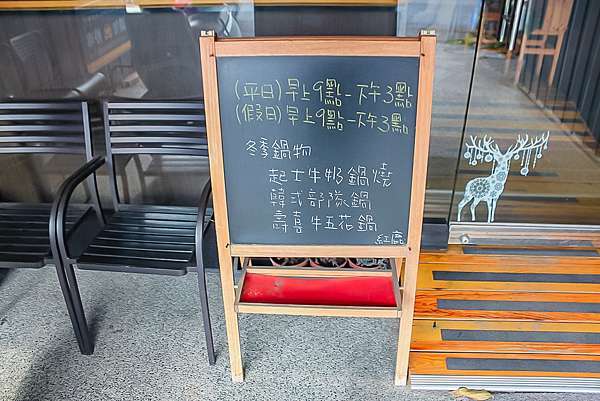 (平日)早上9點-下午3點
(假日)早上9點-下午3點
冬季鍋物
起士牛奶鍋燒
韓式部隊鍋
壽喜牛五花鍋
紅鹿